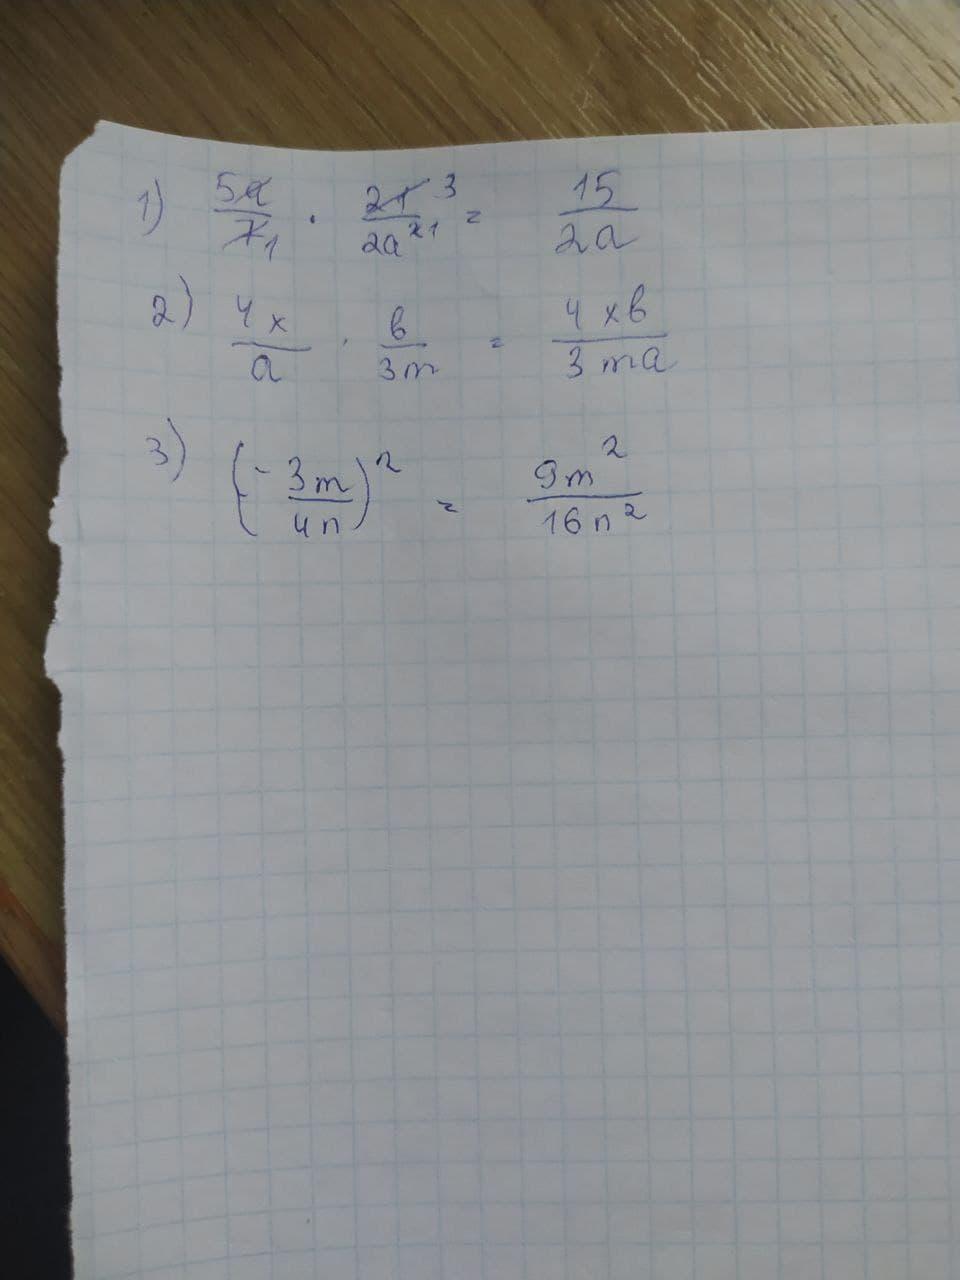 1) 5a/7 1 · 21 3/2a² 1 = 15/2a
2) 4x/a · b/3m = 4xb/3ma
3) (-3m/4n)² = 9m²/16n²